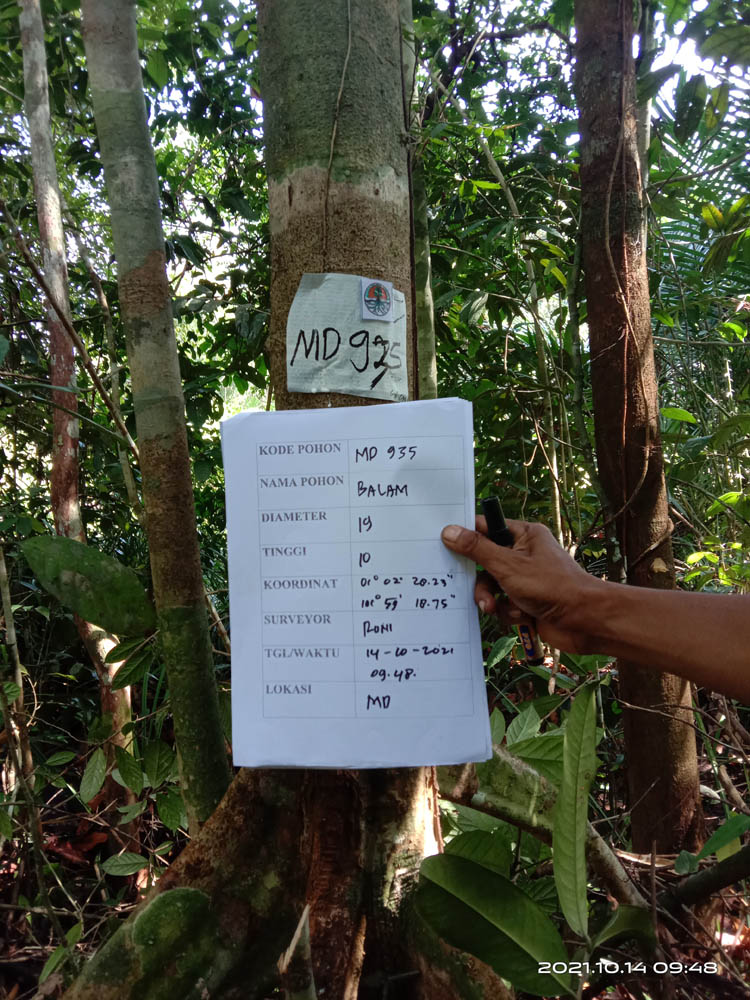 MD 935
KODE POHON MD 935
NAMA POHON BALAM
DIAMETER 19
TINGGI 10
KOORDINAT 01° 02' 28.23"
101° 59' 18.75"
SURVEYOR RONI
TGL/WAKTU 14-10-2021
09.48.
LOKASI MD
2021.10.14 09:48